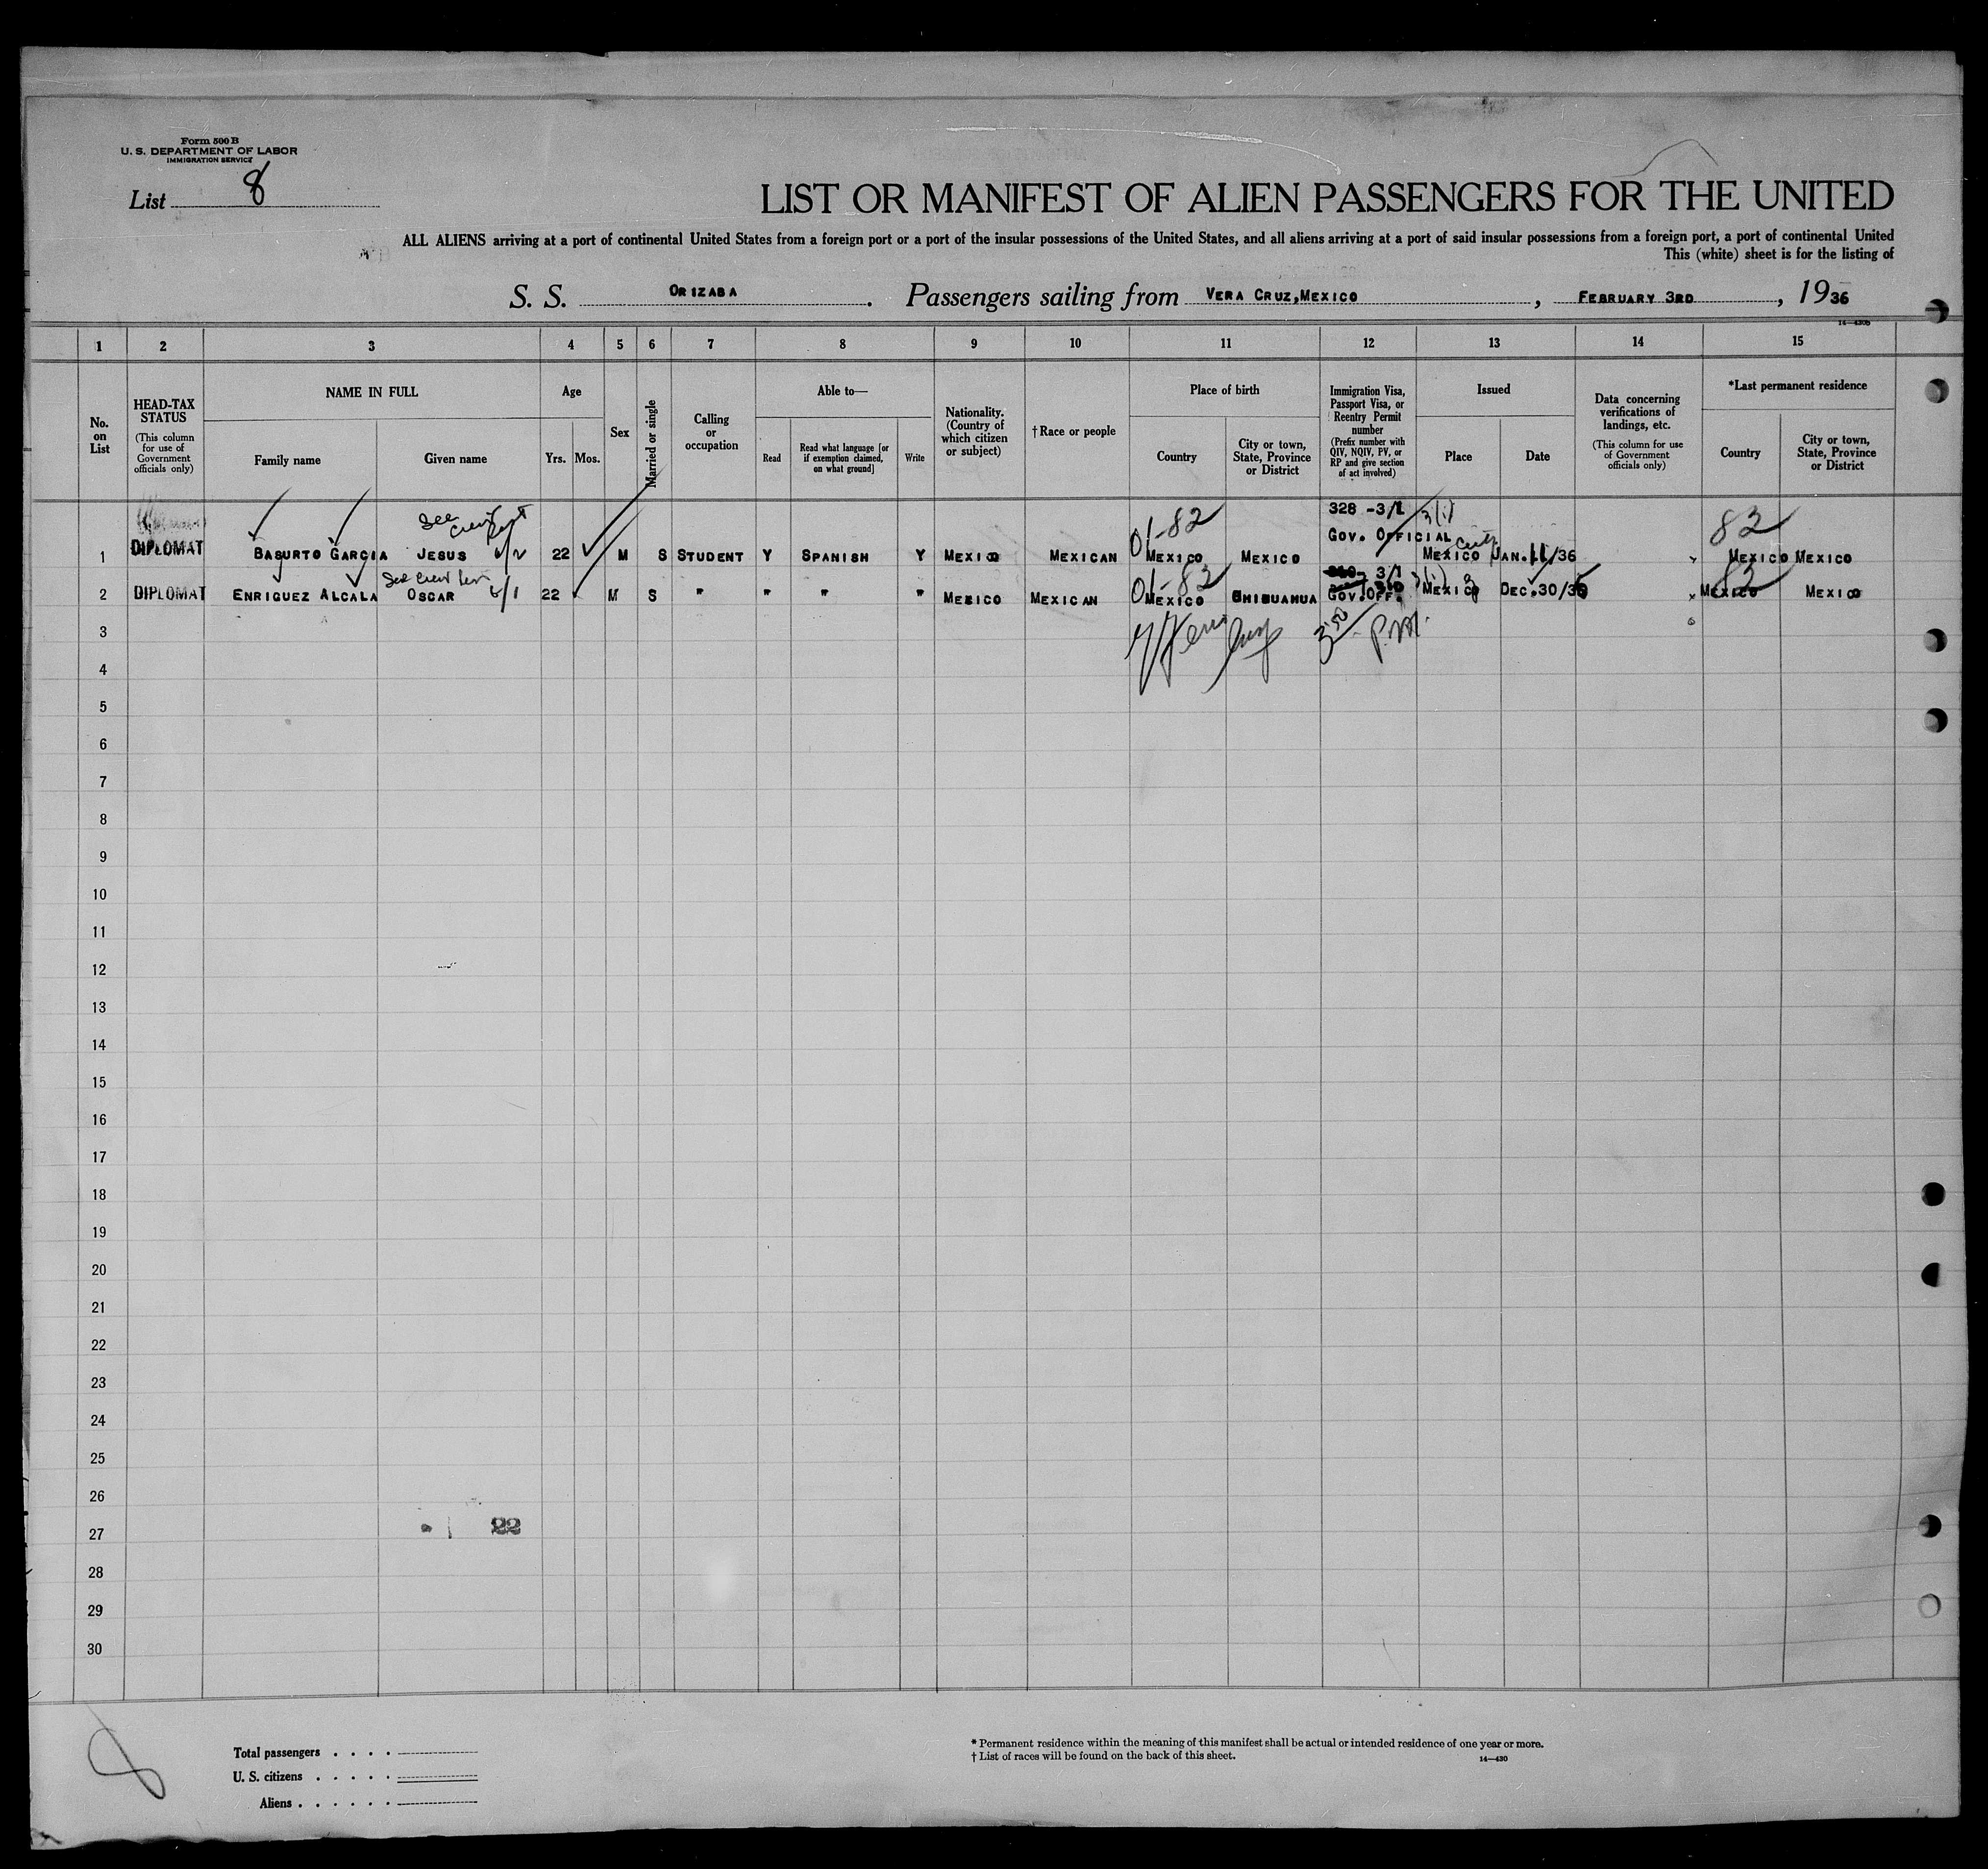 Form 500 B
U. S. DEPARTMENT OF LABOR
IMMIGRATION SERVICE
List 8
LIST OR MANIFEST OF ALIEN PASSENGERS FOR THE UNITED
ALL ALIENS arriving at a port of continental United States from a foreign port or a port of the insular possessions of the United States, and all aliens arriving at a port of said insular possessions from a foreign port, a port of continental United
This (white) sheet is for the listing of
S. S. ORIZABA. Passengers sailing from VERA CRUZ, MEXICO, FEBRUARY 3RD, 1936
14—430B
1 2 3 4 5 6 7 8 9 10 11 12 13 14 15
No. on List
HEAD-TAX STATUS
(This column for use of Government officials only)
NAME IN FULL
Family name Given name
Age
Yrs. Mos.
Sex
Married or single
Calling or occupation
Able to—
Read
Read what language [or if exemption claimed, on what ground]
Write
Nationality. (Country of which citizen or subject)
†Race or people
Place of birth
Country
City or town, State, Province or District
Immigration Visa, Passport Visa, or Reentry Permit number
(Prefix number with QIV, NQIV, PV, or RP and give section of act involved)
Issued
Place Date
Data concerning verifications of landings, etc.
(This column for use of Government officials only)
*Last permanent residence
Country
City or town, State, Province or District
See 01-82 328 -3/1 3(1) 82
1 DIPLOMAT BASURTO GARCIA JESUS 22 M S STUDENT Y SPANISH Y MEXICO MEXICAN MEXICO MEXICO GOV. OFFICIAL MEXICO JAN.11/36 MEXICO MEXICO
See 01-82 3/1 3(1) 82
2 DIPLOMAT ENRIGUEZ ALCALA OSCAR 22 M S " " " " MEXICO MEXICAN MEXICO CHIHUAHUA GOV.OFF. 310 MEXICO DEC.30/35 MEXICO MEXICO
3 350 P.M.
4
5
6
7
8
9
10
11
12
13
14
15
16
17
18
19
20
21
22
23
24
25
26
27 22
28
29
30
8
Total passengers . . . .
U. S. citizens . . . . .
Aliens . . . . . .
* Permanent residence within the meaning of this manifest shall be actual or intended residence of one year or more.
† List of races will be found on the back of this sheet.
14—430